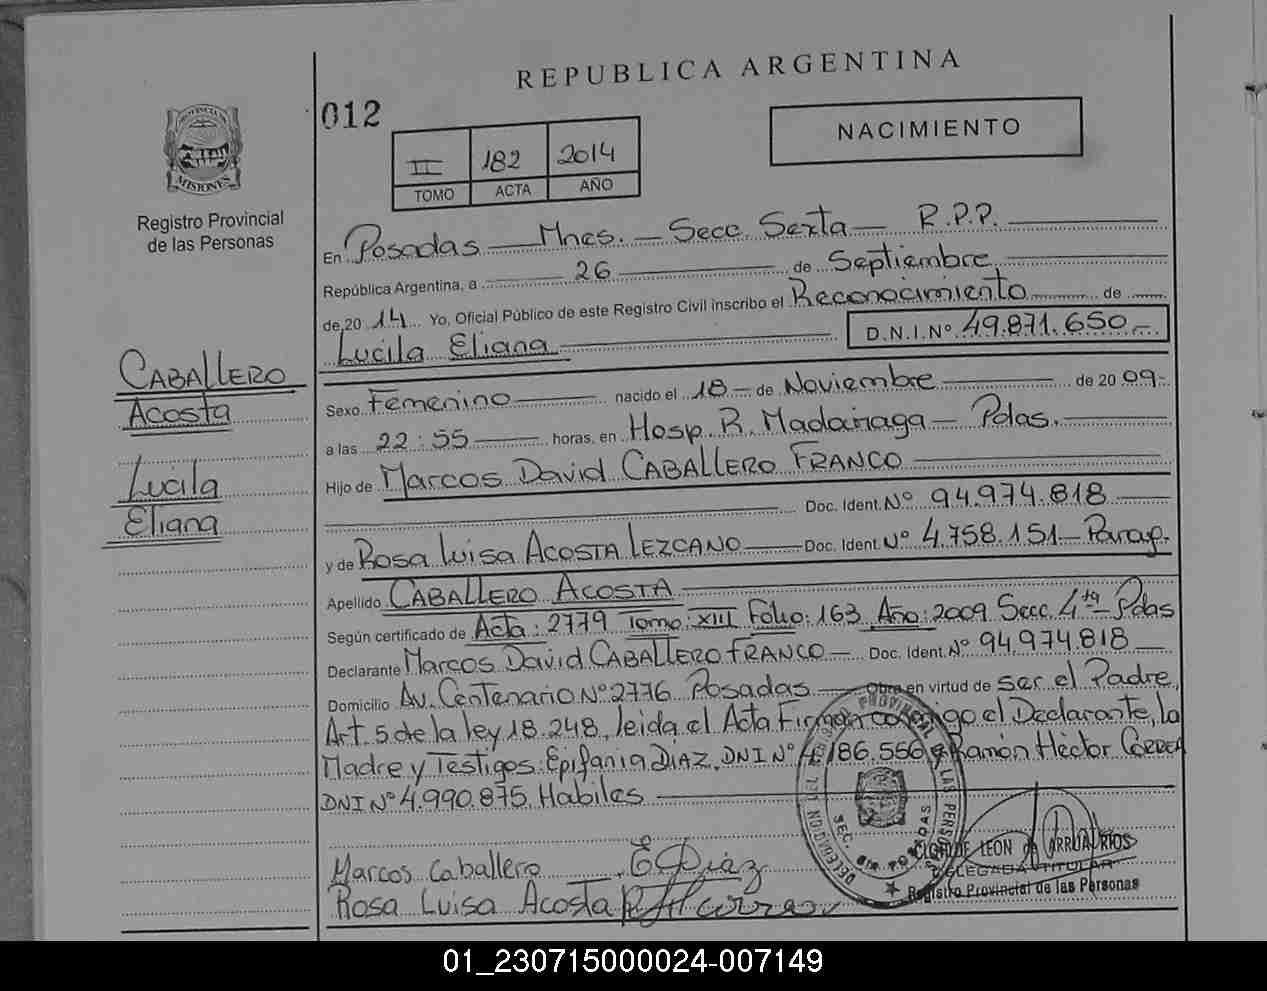 REPUBLICA ARGENTINA
012
NACIMIENTO
PROVINCIA DE
MISIONES
II 182 2014
TOMO ACTA AÑO
Registro Provincial
de las Personas
En Posadas — Mnes. — Secc. Sexta — R.P.P.
República Argentina, a 26 de Septiembre
de 20 14 Yo, Oficial Público de este Registro Civil inscribo el Reconocimiento de
Lucila Eliana D.N.I.Nº 49.871.650.-
CABALLERO
Acosta
Lucila
Eliana
Sexo Femenino nacido el 18 — de Noviembre de 20 09.-
a las 22:55 horas, en Hosp. R. Madariaga — Pdas.
Hijo de Marcos David CABALLERO FRANCO
Doc. Ident. Nº 94.974.818
y de Rosa Luisa ACOSTA LEZCANO Doc. Ident. Nº 4.758.151 — Parag.
Apellido CABALLERO ACOSTA
Según certificado de Acta: 2779 Tomo: XIII Folio: 163 Año: 2009 Secc. 4ta — Pdas
Declarante Marcos David CABALLERO FRANCO — Doc. Ident. Nº 94.974.818
Domicilio Av. Centenario Nº 2776 Posadas Obra en virtud de ser el Padre,
Art. 5 de la ley 18.248, leida el Acta Firman conmigo el Declarante, la
Madre y Testigos: Epifania DIAZ, DNI Nº 4.186.556 y Ramón Héctor CORREA
DNI Nº 4.990.875. Habiles
Marcos Caballero E Diaz
Rosa Luisa Acosta
DELEGACION DEL REGISTRO PROVINCIAL DE LAS PERSONAS
SEC. 6ta POSADAS
CLOTILDE LEON de ARRUA RIOS
DELEGADA TITULAR
Registro Provincial de las Personas
01_230715000024-007149